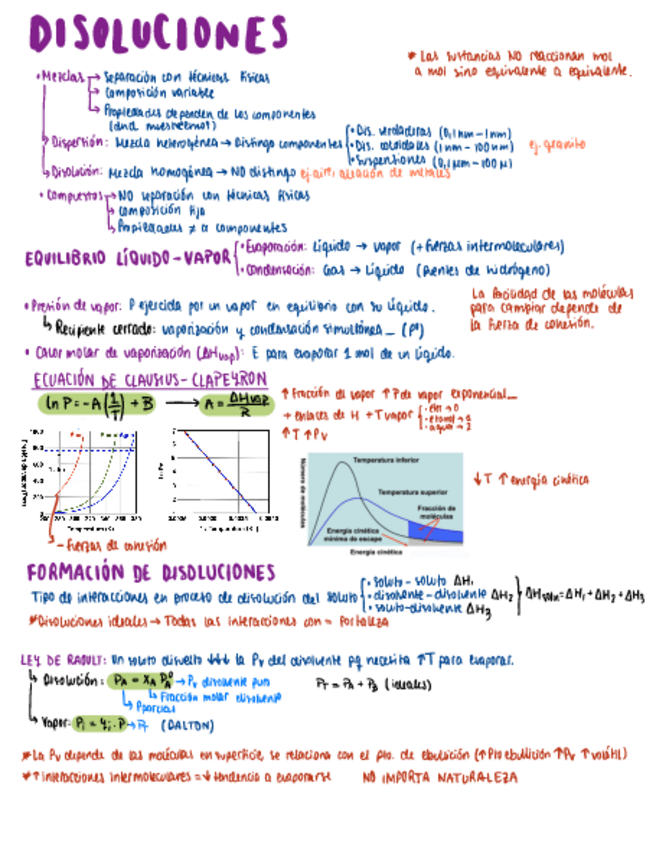 DISOLUCIONES
* Las sustancias NO reaccionan mol
a mol sino equivalente a equivalente.
• Mezclas → Separación con técnicas físicas
→ Composición variable
→ Propiedades dependen de los componentes
→ Dispersión: Mezcla heterogénea → Distingo componentes
• Dis. verdaderas (0,1nm - 1nm)
• Dis. coloidales (1nm - 100nm)
• Suspensiones (0,1 μm - 100 μ)
ej. granito
→ Disolución: Mezcla homogénea → NO distingo ej. aire, aleación de metales
• Compuestos → NO separación con técnicas físicas
→ Composición fija
→ Propiedades ≠ a componentes
EQUILIBRIO LÍQUIDO-VAPOR
• Evaporación: Líquido → vapor (+ fuerzas intermoleculares)
• Condensación: Gas → Líquido (Puentes de hidrógeno)
• Presión de vapor: P ejercida por un vapor en equilibrio con su líquido.
↳ Recipiente cerrado: vaporización y condensación simultánea_ (Pº)
La facilidad de las moléculas
para cambiar depende de
la fuerza de cohesión.
• Calor molar de vaporización (ΔHvap): E para evaporar 1 mol de un líquido.
ECUACIÓN DE CLAUSIUS-CLAPEYRON
ln P = -A(1/T) + B → A = ΔHvap/R
↑ Fracción de vapor ↑ P de vapor exponencial_
+ enlaces de H + T vapor
• etanol → 1
• agua → 2
↑T ↑Pv
Temperatura inferior
Temperatura superior
Número de moléculas
Fracción de
moléculas
Energía cinética
mínima de escape
Energía cinética
↓T ↑ energía cinética
ln Pv
- Fuerzas de cohesión
FORMACIÓN DE DISOLUCIONES
Tipo de interacciones en proceso de disolución del soluto
• soluto - soluto ΔH₁
• disolvente - disolvente ΔH₂
• soluto-disolvente ΔH₃
ΔHsoln = ΔH₁ + ΔH₂ + ΔH₃
*Disoluciones ideales → Todas las interacciones con = fortaleza
LEY DE RAOULT: Un soluto disuelto ↓↓↓ la Pv del disolvente pq necesita ↑T para evaporar.
↳ Disolución: PA = XA PAº → Pv disolvente puro
↳ Fracción molar disolvente
↳ Pparcial
PT = PA + PB (ideales)
↳ Vapor: Pi = yi · P → PT (DALTON)
*La Pv depende de las moléculas en superficie, se relaciona con el pto. de ebullición (↑Pto ebullición ↑Pv ↑volátil)
*↑ Interacciones intermoleculares = ↓ tendencia a evaporarse NO IMPORTA NATURALEZA